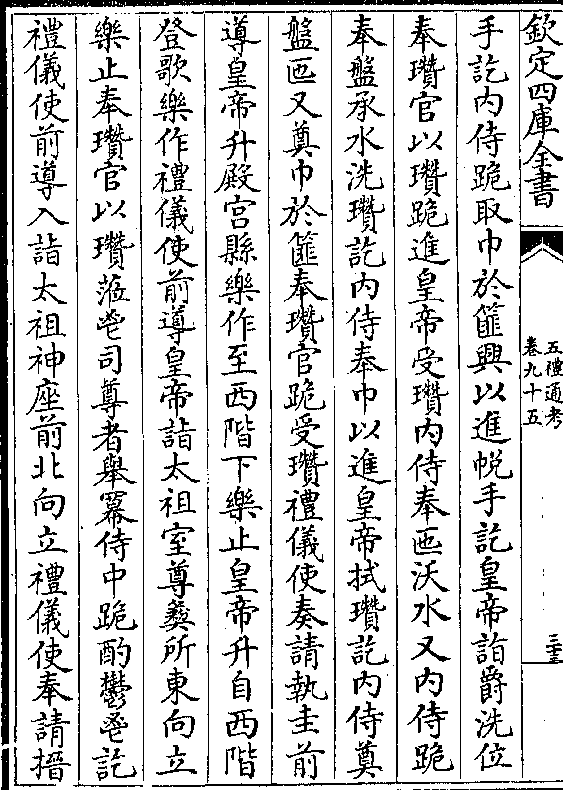 欽定四庫全書
五禮通考
卷九十五
三十三
手訖内侍跪取巾於篚興以進帨手訖皇帝詣爵洗位
奉瓚官以瓚跪進皇帝受瓚内侍奉匜沃水又内侍跪
奉盤承水洗瓚訖内侍奉巾以進皇帝拭瓚訖内侍奠
盤匜又奠巾於篚奉瓚官跪受瓚禮儀使奏請執圭前
導皇帝升殿宫縣樂作至西階下樂止皇帝升自西階
登歌樂作禮儀使前導皇帝詣太祖室尊彝所東向立
樂止奉瓚官以瓚蒞鬯司尊者舉羃侍中跪酌鬱鬯訖
禮儀使前導入詣太祖神座前北向立禮儀使奉請搢